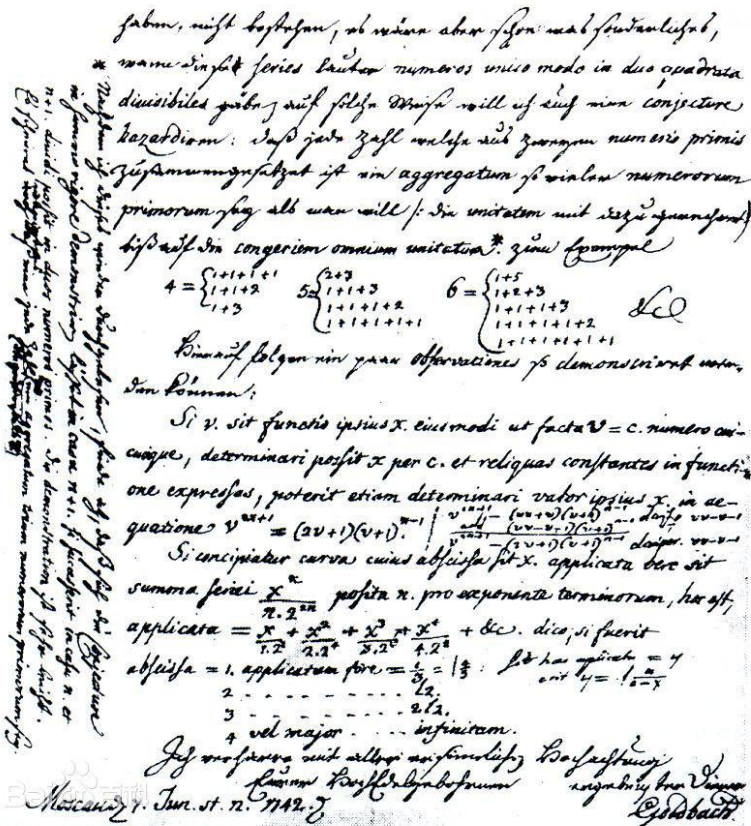 haben, nicht bestehen, es wäre aber schon was sonderliches,
wann diese series lauter numeros unico modo in duo quadrata
divisibiles gäbe, auf solche Weise will ich auch eine conjecture
hazardiren: daß jede Zahl welche aus zweyen numeris primis
zusammengesetzt ist ein aggregatum so vieler numerorum
primorum sey als man will /: die unitatem mit dazu gerechnet
biß auf die congeriem omnium unitatum*. zum Exempel
4 = { 1+1+1+1 5 = { 2+3 6 = { 1+5
1+1+2 1+1+3 1+2+3
1+3 1+1+1+2 1+1+1+3
1+1+1+1+1 1+1+1+1+2
1+1+1+1+1+1 &c
Hierauf folgen ein paar observationes so demonstriret wer-
den können:
Si v. sit functio ipsius x. eiusmodi ut facta v = c. numero cui-
cunque, determinari possit x per c. et reliquas constantes in functi-
one expressas, poterit etiam determinari valor ipsius x. in ae-
quatione v^2x+1 = (2v+1)(v+1)^x-1
Si concipiatur curva cuius abscissa sit x. applicata vero sit
summa seriei x^n/n.2^2n posita n. pro exponente terminorum, hoc est,
applicata = x/1.2^2 + x^2/2.2^4 + x^3/3.2^6 + x^4/4.2^8 + &c. dico, si fuerit
abscissa = 1. applicatam fore = l4/3
2 - - - - - - - - l2.
3 - - - - - - - - 2l2.
4 vel major - - - infinitam.
Ich verharre mit aller ersinnlichen Hochachtung
Eurer HochEdelgebohrnen ergebenster Diener
Moscau 7. Jun. st. n. 1742. Goldbach.
* Nachdem ich dieses wieder durchgelesen, finde ich, daß sich die conjecture
in summo rigore demonstriren lässet in casu n+1. si successerit in casu n. et
n+1. dividi possit in duos numeros primos. Die demonstration ist sehr leicht.
Es scheinet wenigstens, daß eine jede Zahl ein aggregatum trium numerorum primorum sey.
Baidu百科